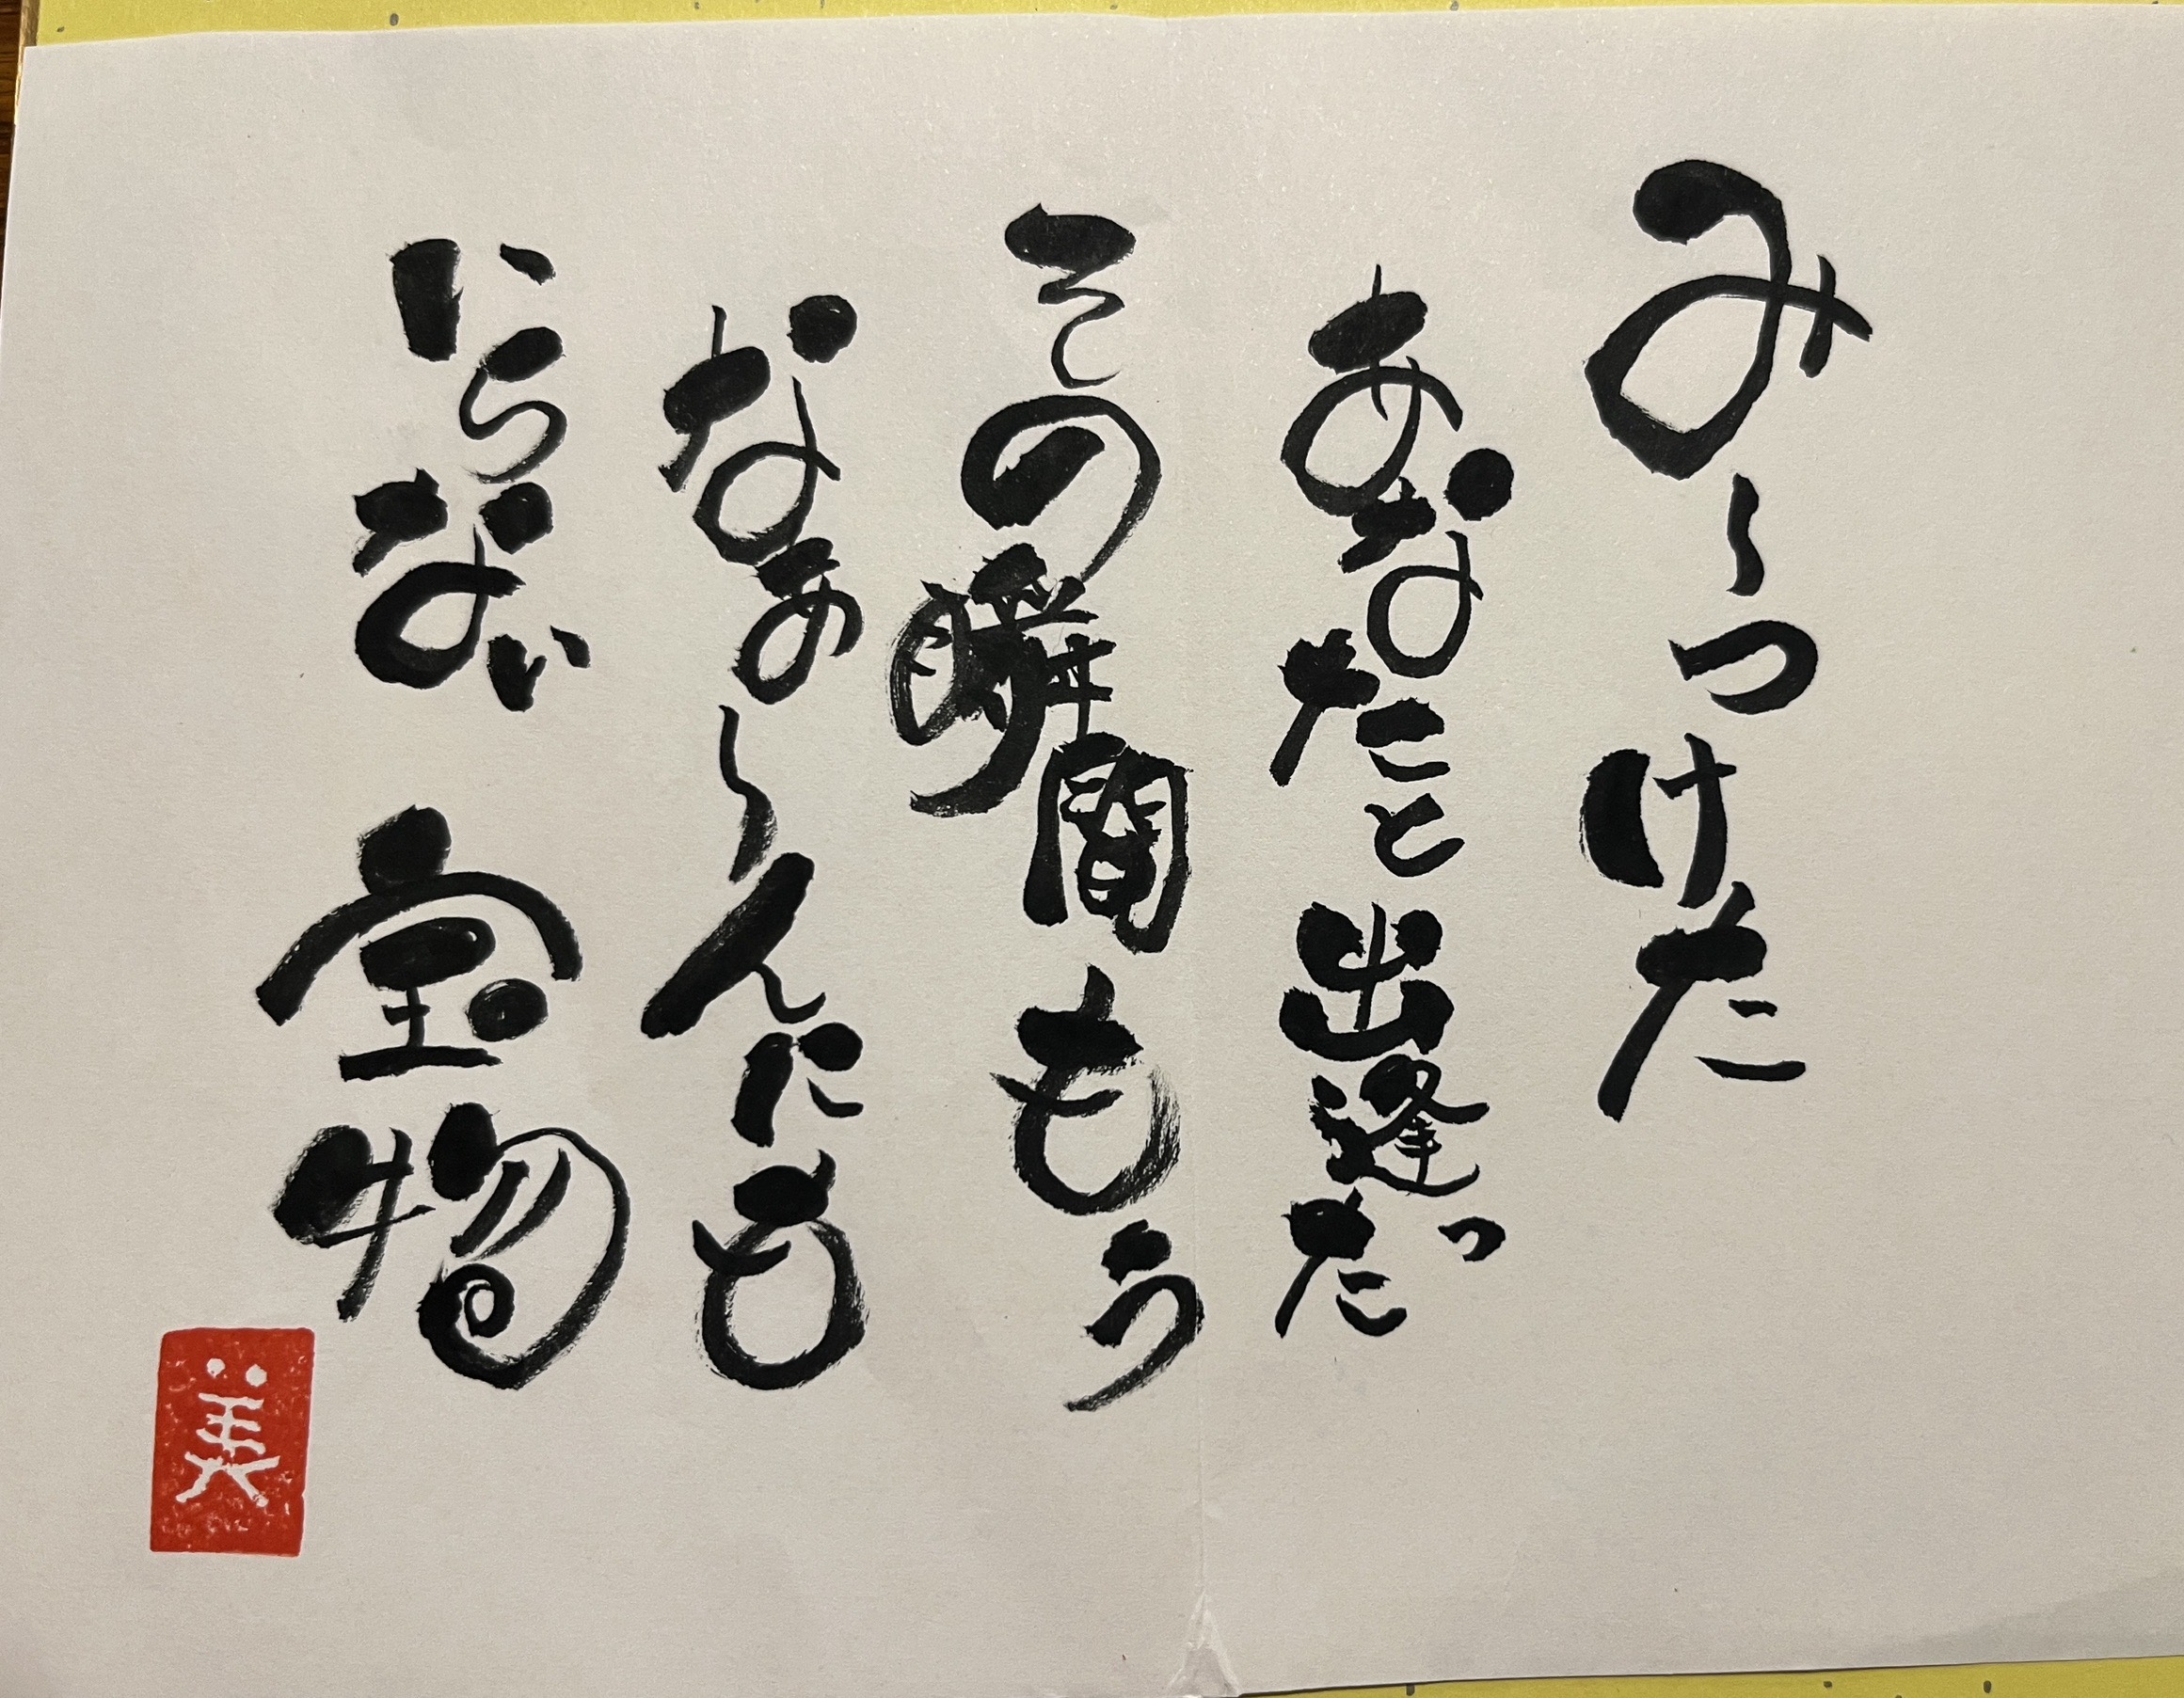 み〜つけた
あなたと出逢った
その瞬間もう
なぁ〜んにも
いらない宝物
美